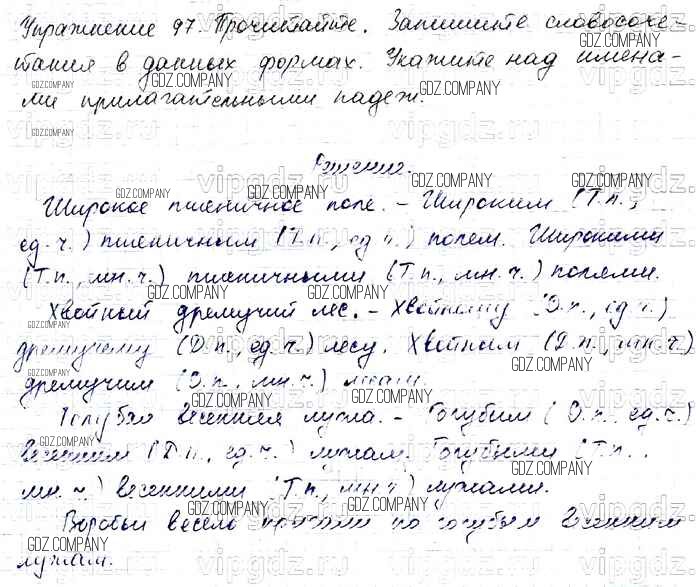 Упражнение 97. Прочитайте. Запишите словосоче-
тания в данных формах. Укажите над имена-
ми прилагательными падеж.
Решение.
Широкое пшеничное поле. - Широким (Т.п.,
ед.ч.) пшеничным (Т.п., ед.ч.) полем. Широкими
(Т.п., мн.ч.) пшеничными (Т.п., мн.ч.) полями.
Хвойный дремучий лес. - Хвойному (Д.п., ед.ч.)
дремучему (Д.п., ед.ч.) лесу. Хвойным (Д.п., мн.ч.)
дремучим (Д.п., мн.ч.) лесам.
Голубая весенняя лужа. - Голубым (Д.п., ед.ч.)
весенним (Д.п., ед.ч.) лужам. Голубыми (Т.п.,
мн.ч.) весенними (Т.п., мн.ч.) лужами.
Воробьи весело прыгали по голубым весенним
лужам.